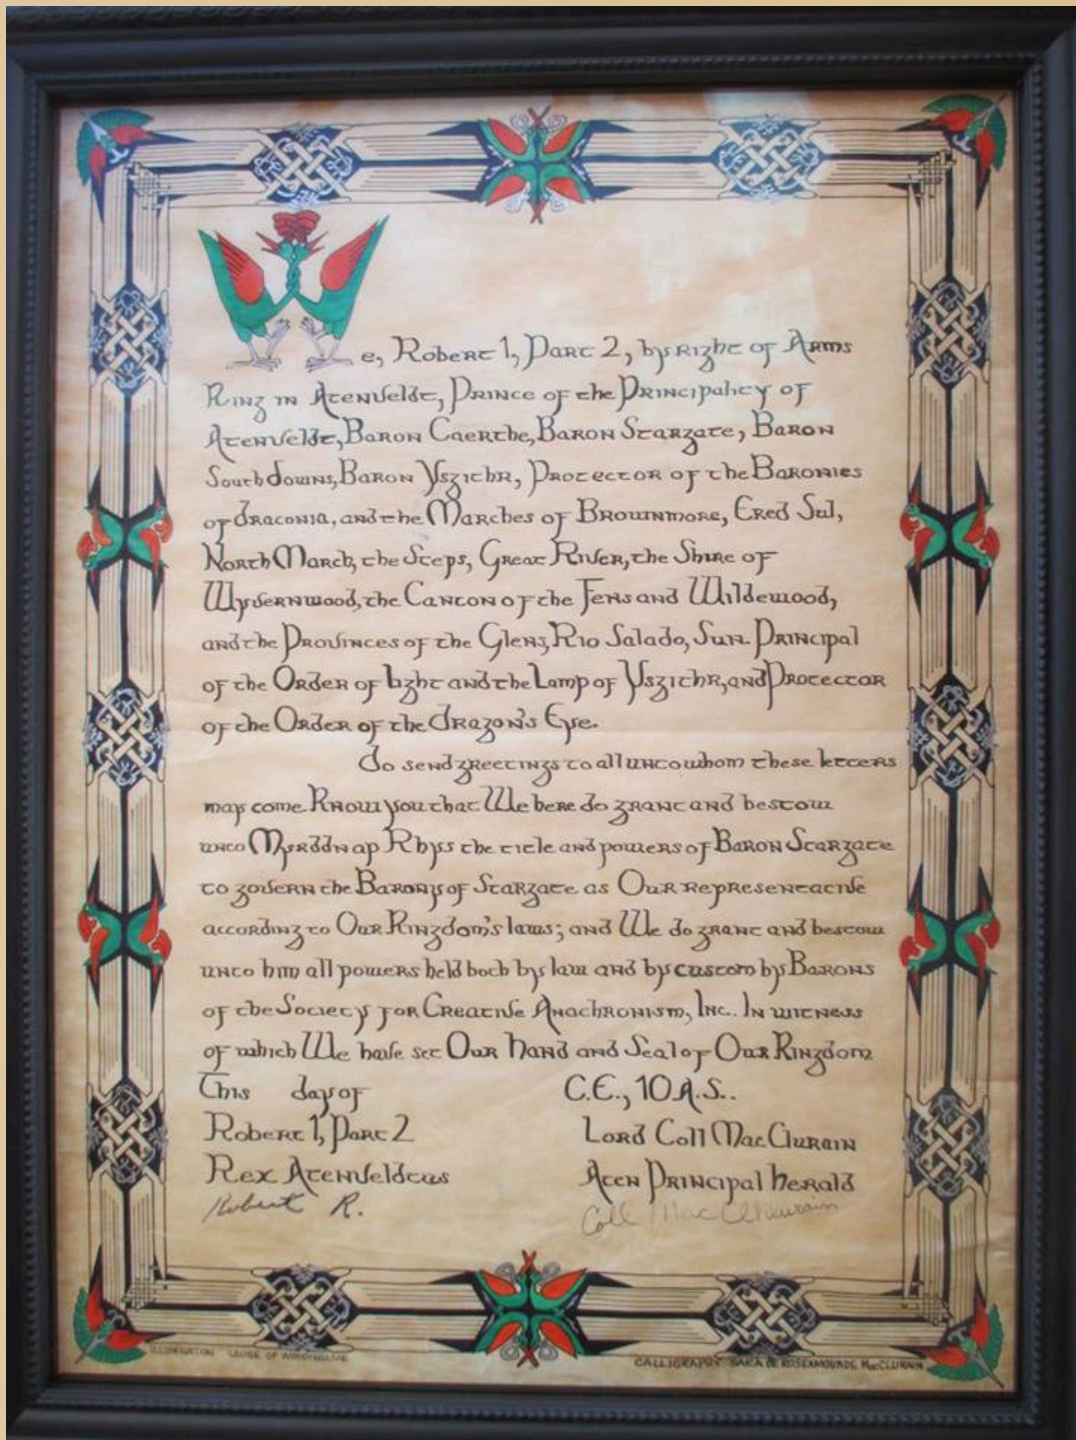 We, Robert 1, Part 2, by right of Arms
King in Atenveldt, Prince of the Principality of
Atenveldt, Baron Caerthe, Baron Stargate, Baron
Southdowns, Baron Ysgithr, Protector of the Baronies
of Draconia, and the Marches of Brownmore, Ered Sul,
North March, the Steps, Great River, the Shire of
Wyvernwood, the Canton of the Fens and Wildewood,
and the Provinces of the Glens, Rio Salado, Sun Principal
of the Order of Light and the Lamp of Ysgithr, and Protector
of the Order of the Dragon's Eye.
do send greetings to all unto whom these letters
may come. Know you that We here do grant and bestow
unto Myrddn ap Rhys the title and powers of Baron Stargate
to govern the Barony of Stargate as Our representative
according to Our Kingdom's laws; and We do grant and bestow
unto him all powers held both by law and by custom by Barons
of the Society for Creative Anachronism, Inc. In witness
of which We have set Our Hand and Seal of Our Kingdom
This day of C.E., 10 A.S..
Robert 1, Part 2 Lord Coll MacClurain
Rex Atenveldtus Aten Principal Herald
Robert R. Coll
ILLUMINATION LOUISE OF
CALLIGRAPHY SARA DE ROSEAMOUNDE MacCLURAIN